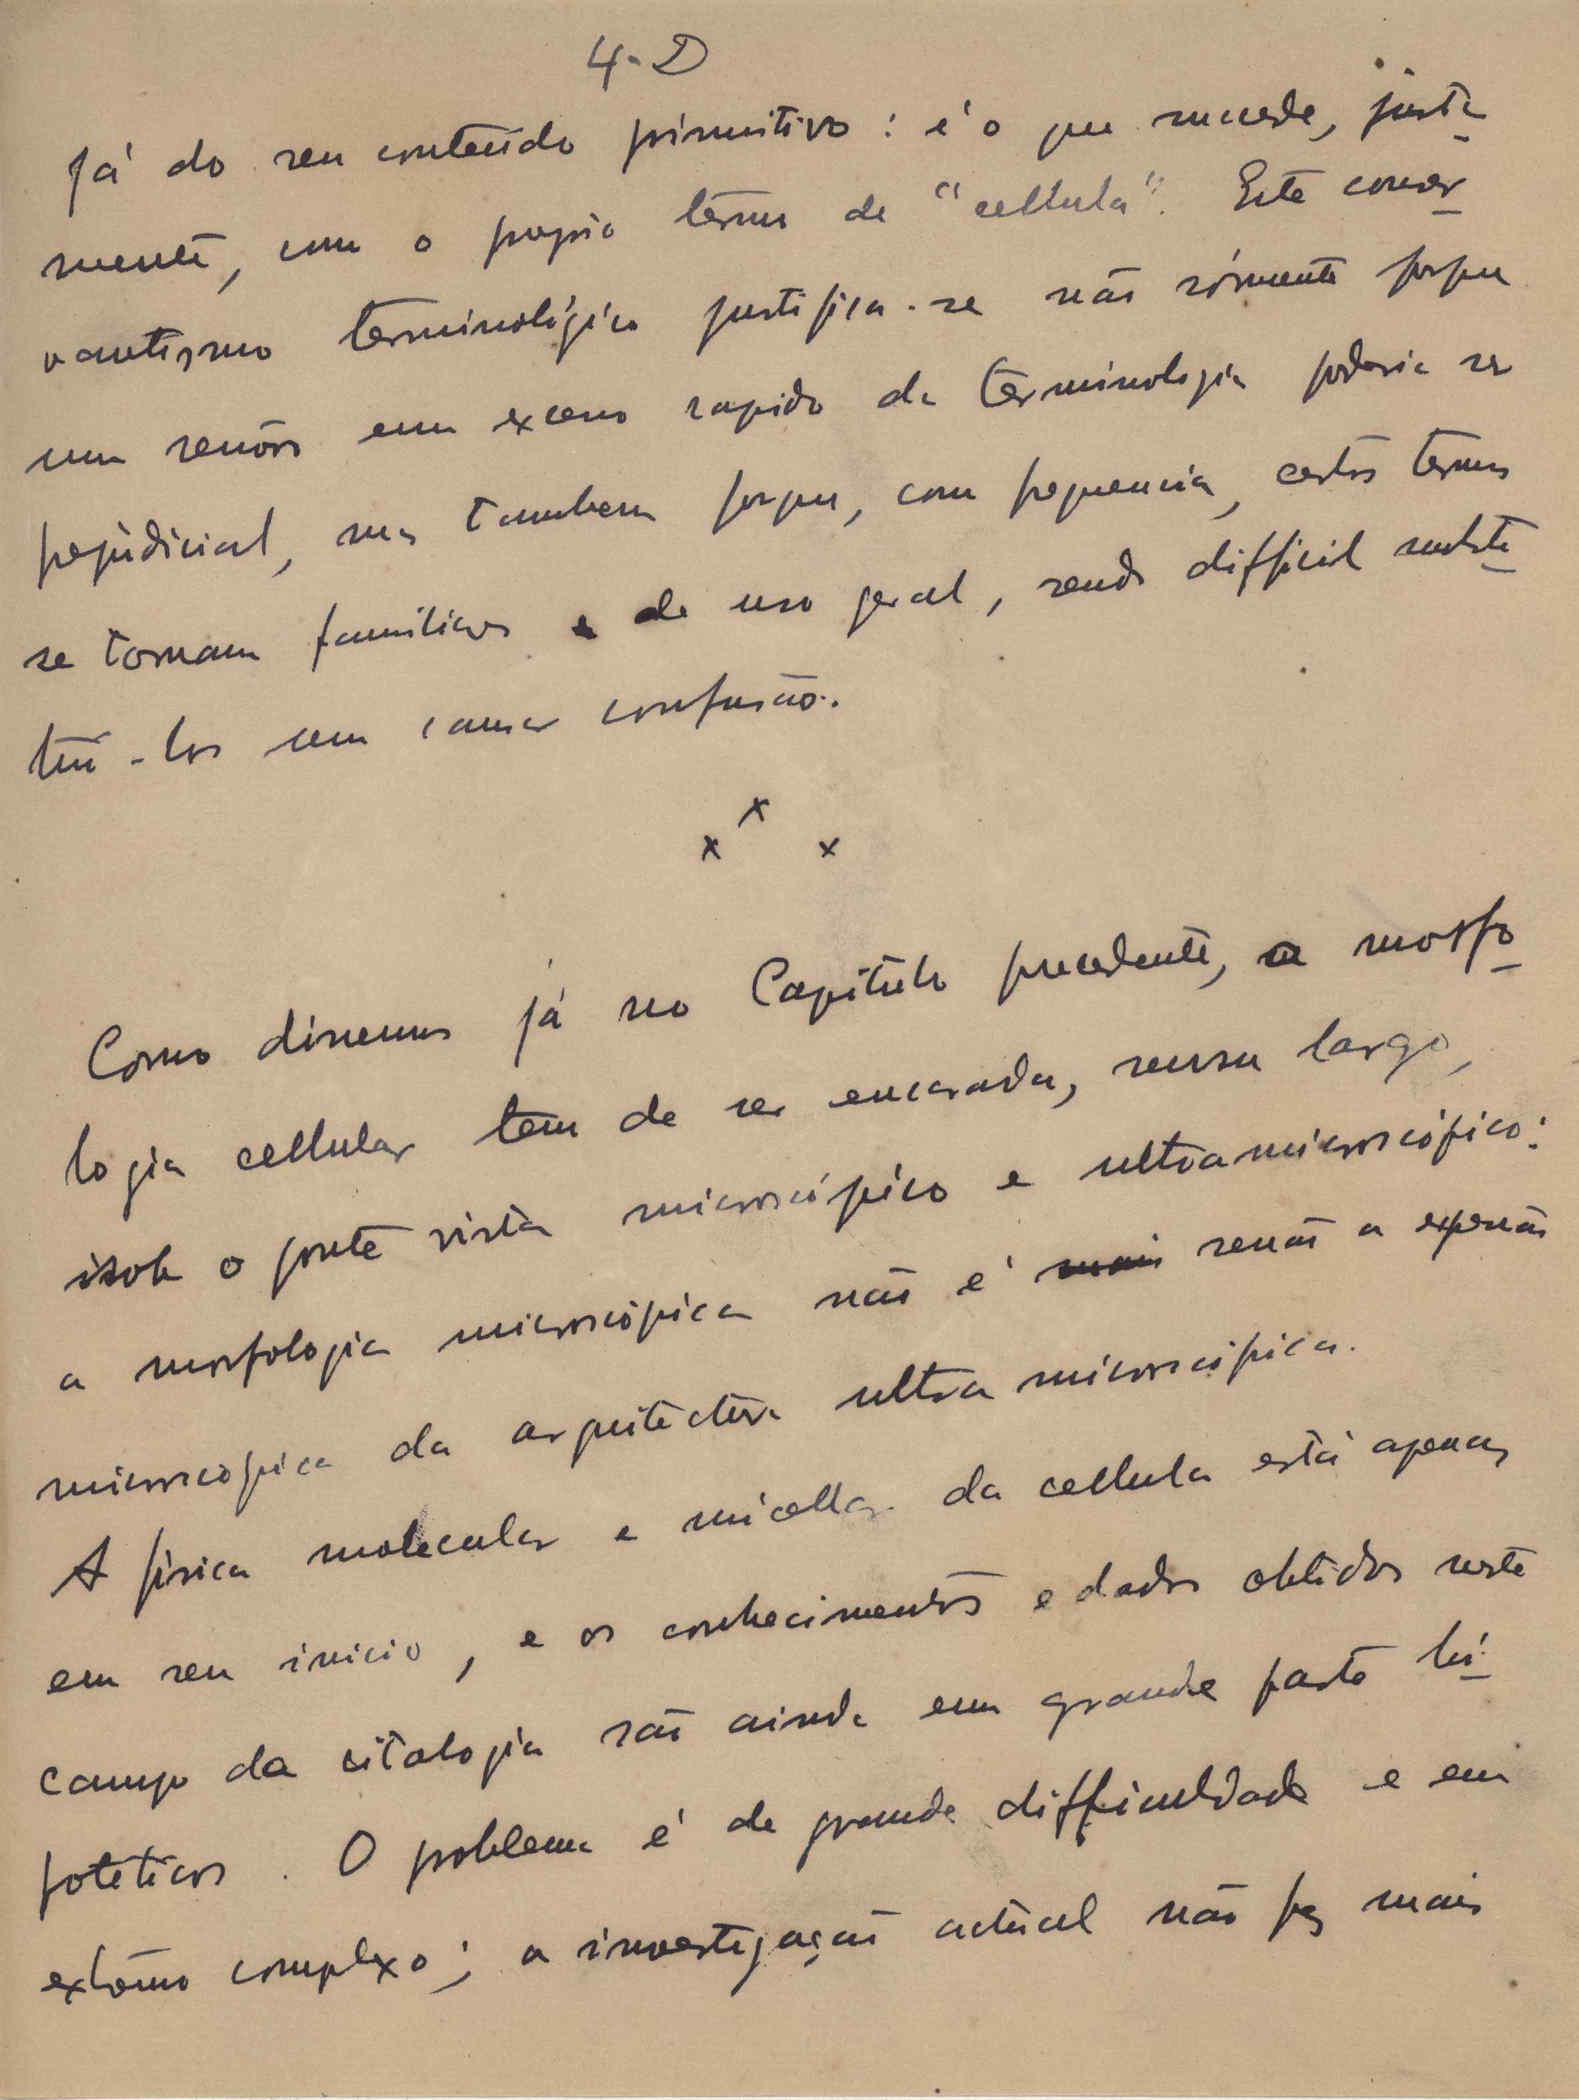 4-D
já do seu conteúdo primitivo: é o que succede, justa-
mente, com o proprio termo de "cellula". Este conser-
vantismo terminológico justifica-se não sómente porque
um senões em excesso rapido da terminologia poderia ser
prejudicial, mas tambem porque, com frequencia, certos termos
se tornam familiares e de uso geral, sendo difficil substi-
tui-los sem causar confusão.
x x x
Como dissemos já no Capitulo precedente, a morfo-
logia cellular tem de ser encarada, sensu largo,
sob o ponto vista microscópico e ultramicroscópico:
a morfologia microscópica não é senão a expressão
microscópica da arquitectura ultramicroscópica.
A física molecular e micellar da cellula está apenas
em seu inicio, e os conhecimentos e dados obtidos neste
campo da citologia são ainda em grande parte hi-
poteticos. O problema é de grande difficuldade e em
extremo complexo; a investigação actual não fez mais